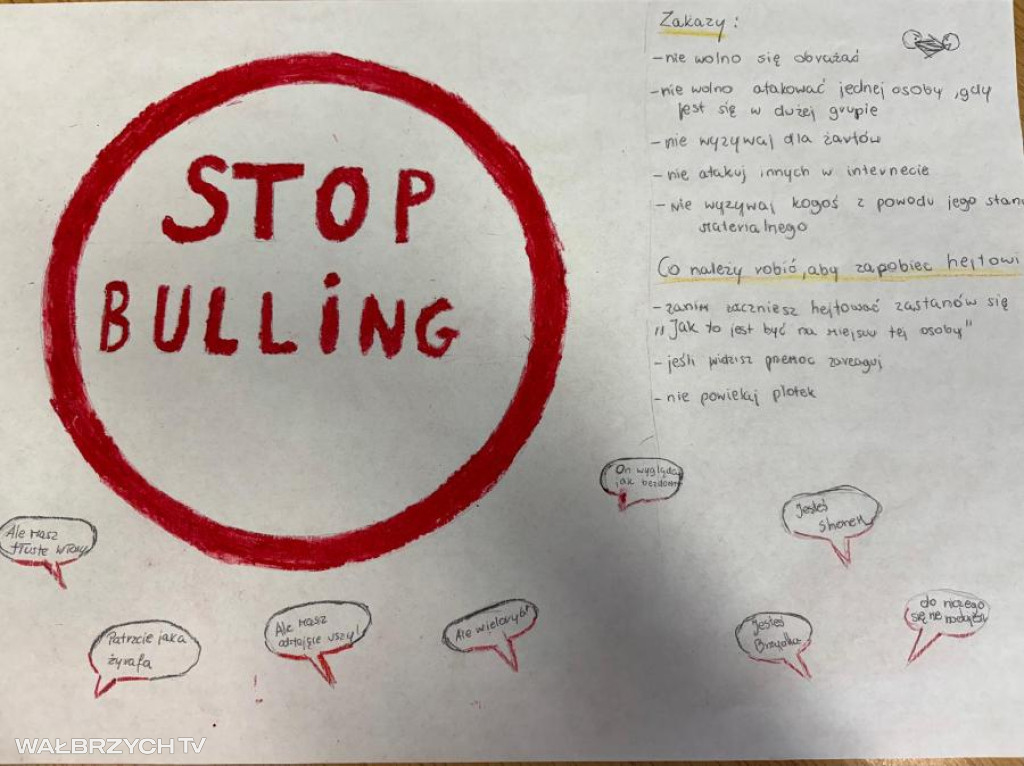 STOP
BULLING
Zakazy:
- nie wolno się obrażać
- nie wolno atakować jednej osoby, gdy
jest się w dużej grupie
- nie wyzywaj dla żartów
- nie atakuj innych w internecie
- nie wyzywaj kogoś z powodu jego stanu
materialnego
Co należy robić, aby zapobiec hejtowi
- zanim zaczniesz hejtować zastanów się
"Jak to jest być na miejscu tej osoby"
- jeśli widzisz przemoc zareaguj
- nie powielaj plotek
On wygląda
jak bezdomny
Jesteś
słoniem
Ale masz
tłuste włosy
Patrzcie jaka
żyrafa
Ale masz
odstające uszy!
Ale wieloryb!
Jesteś
Brzydka
do niczego
się nie nadajesz
WAŁBRZYCH TV